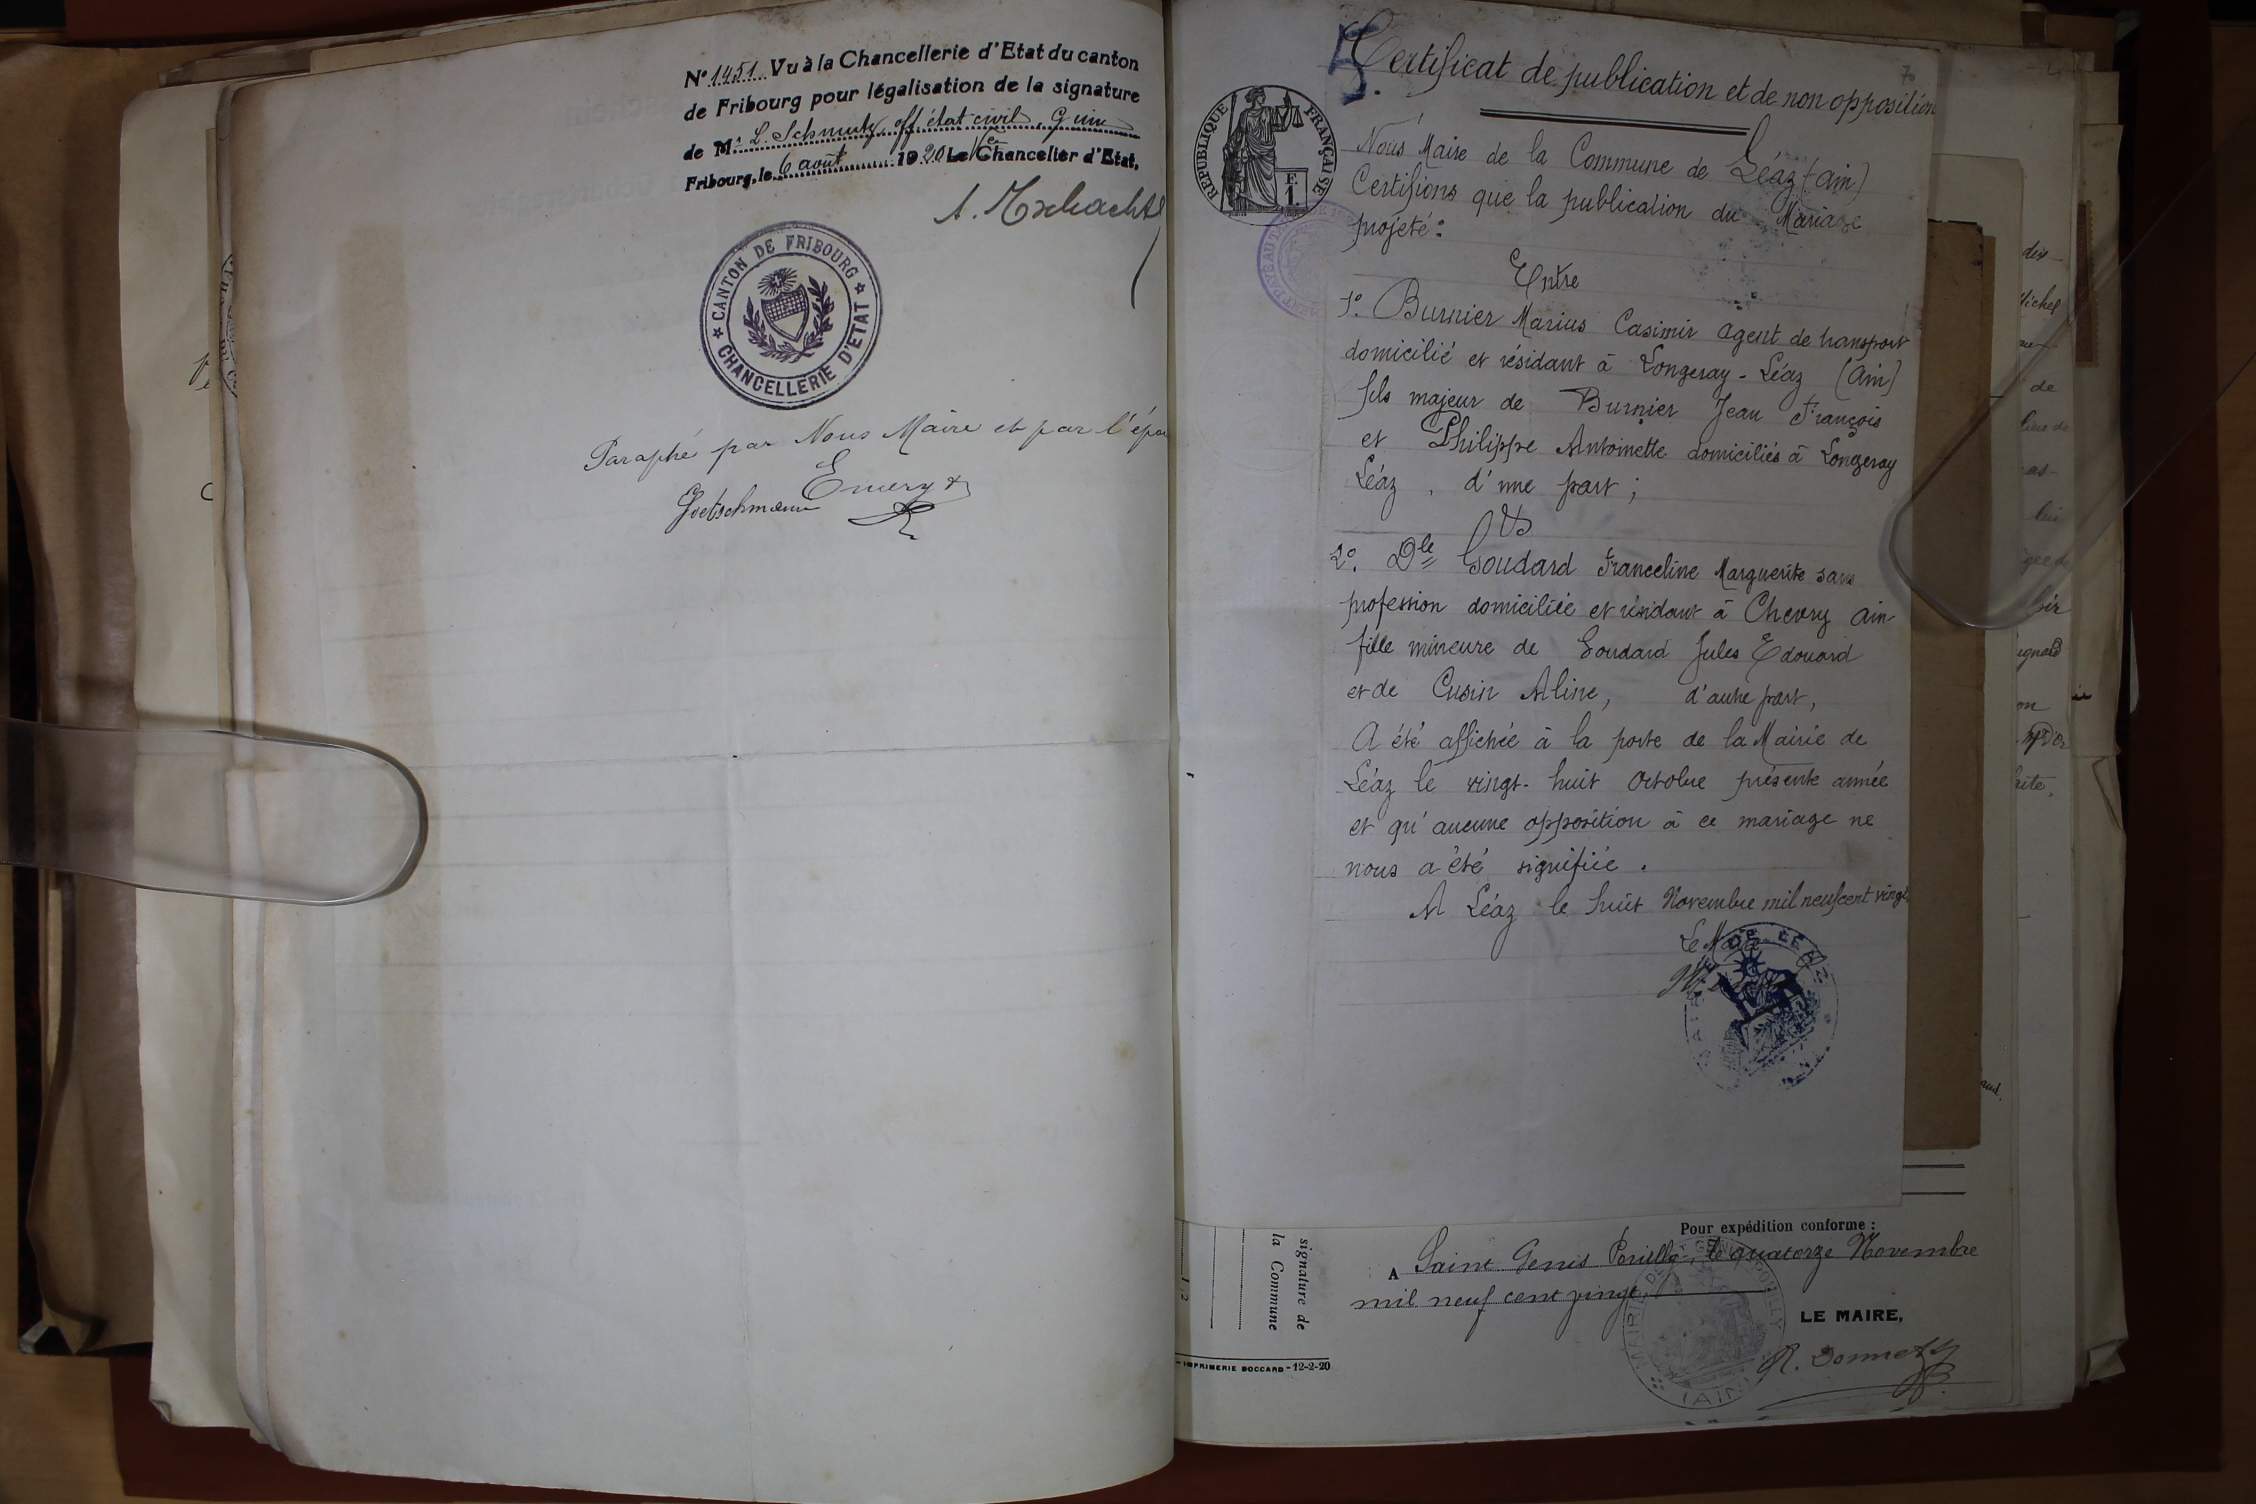 N° 1451 Vu à la Chancellerie d'Etat du canton
de Fribourg pour légalisation de la signature
de Mr L. Schmutz, off. état civil, Guin
Fribourg, le 6 août 1920 Le Vce Chancelier d'Etat,
CANTON DE FRIBOURG
CHANCELLERIE D'ETAT
Paraphé par Nous Maire et par l'épou
Emery
Goetschmann
5.
Certificat de publication et de non opposition
RÉPUBLIQUE FRANÇAISE
F.
1.
Nous Maire de la Commune de Léaz (Ain)
Certifions que la publication du Mariage
projeté :
Entre
1° Burnier Marius Casimir agent de transport
domicilié et résidant à Longeray - Léaz (Ain)
fils majeur de Burnier Jean François
et Philippe Antoinette domiciliés à Longeray
Léaz , d'une part ;
Et
2° Dlle Goudard Franceline Marguerite sans
profession domiciliée et résidant à Chevry Ain
fille mineure de Goudard Jules Edouard
et de Cusin Aline, d'autre part,
A été affichée à la porte de la Mairie de
Léaz le vingt-huit Octobre présente année
et qu'aucune opposition à ce mariage ne
nous a été signifiée .
A Léaz le huit Novembre mil neuf cent vingt
Le Maire
DE LÉAZ
Pour expédition conforme :
A Saint Genis Pouilly, le quatorze Novembre
mil neuf cent vingt.
LE MAIRE,
R. Donnet
MAIRIE DE ST GENIS-POUILLY
(AIN)
signature de
la Commune
IMPRIMERIE BOCCARD - 12-2-20